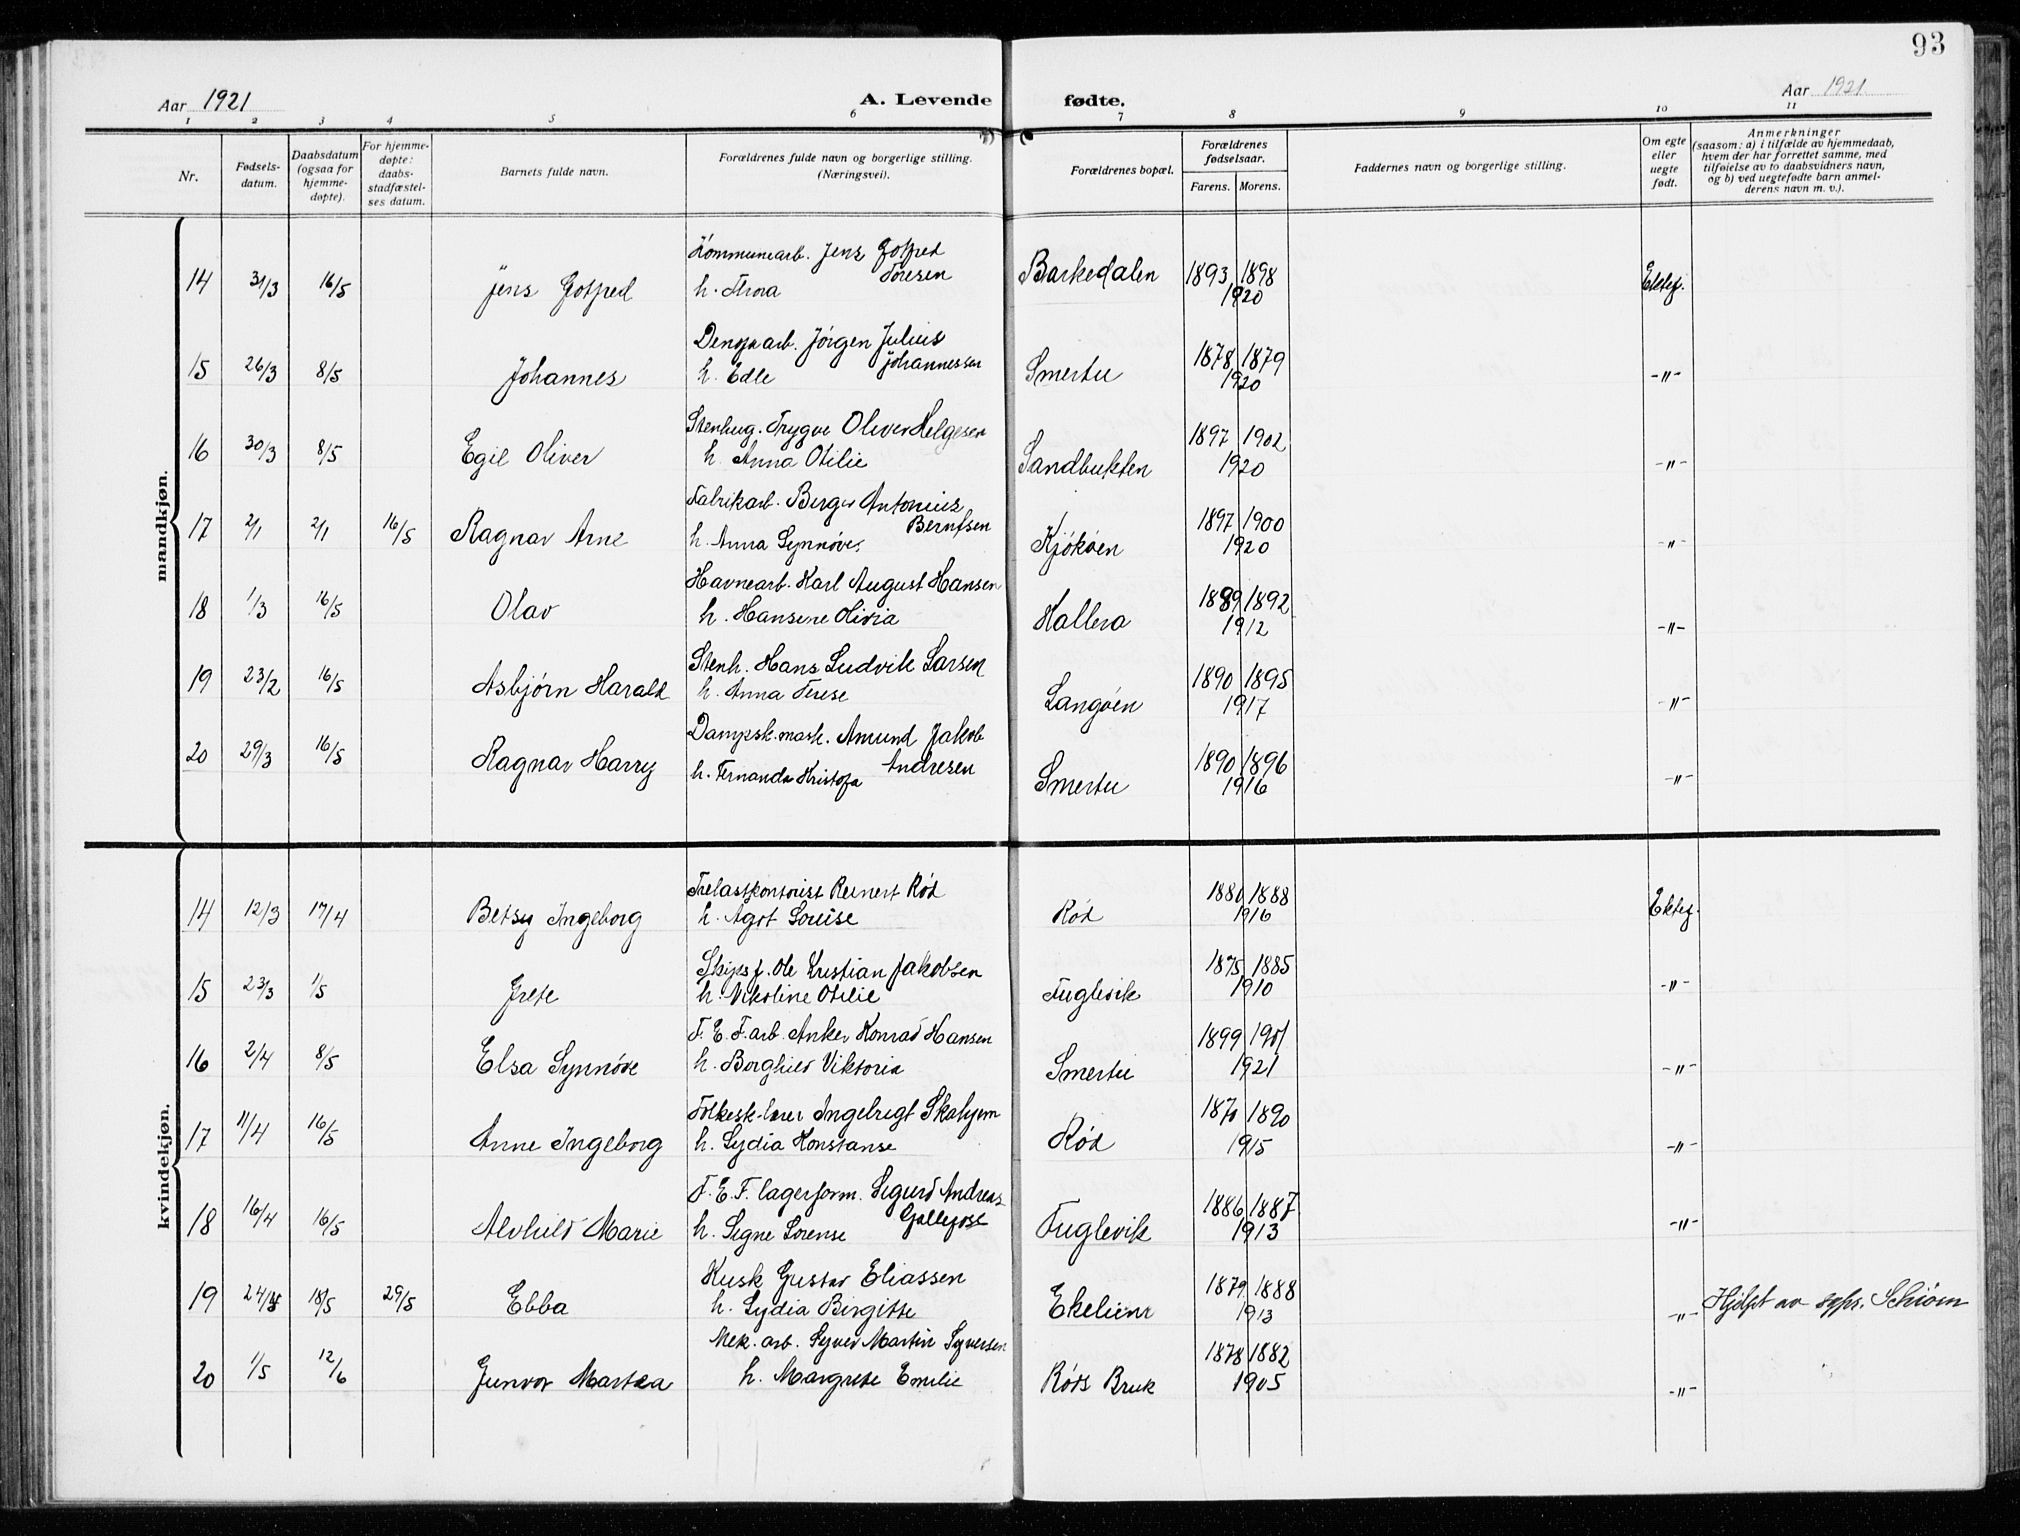 93
Aar 1921
A. Levende fødte.
Aar 1921
1 2 3 4 5 6 7 8 9 10 11
Nr.
Fødsels-
datum.
Daabsdatum
(ogsaa for
hjemme-
døpte).
For hjemme-
døpte:
daabs-
stadfæstel-
ses datum.
Barnets fulde navn.
Forældrenes fulde navn og borgerlige stilling.
(Næringsvei).
Forældrenes bopæl.
Forældrenes
fødselsaar.
Farens. Morens.
Faddernes navn og borgerlige stilling.
Om egte
eller
uegte
født.
Anmerkninger
(saasom: a) i tilfælde av hjemmedaab,
hvem der har forrettet samme, med
tilføielse av to daabsvidners navn,
og b) ved uegtefødte barn anmel-
derens navn m. v.).
mandkjøn.
Kommunearb. Jens Gotfred
14 31/3 16/5 Jens Gotfred h. Thora Toresen Barkedalen 1893 1898 Ektef.
1920
arb. Jörgen Julius
15 26/3 8/5 Johannes h. Edle Johannessen Smertu 1878 1879 -"-
1920
Stenhug. Trygve Oliver Helgesen
16 30/3 8/5 Egil Oliver h. Anna Otilie Sandbukten 1897 1902 -"-
1920
Fabrikarb. Birger Antonius
17 2/1 2/1 16/5 Ragnar Arne h. Anna Synnöve Berntsen Kjököen 1897 1900 -"-
1920
Havnearb. Karl August Hansen
18 1/3 16/5 Olav h. Hansine Olivia Hallera 1889 1892 -"-
1912
Stenh. Hans Ludvik Larsen
19 23/2 16/5 Asbjörn Harald h. Anna Terese Langöen 1890 1895 -"-
1917
Dampsk.mask. Amund Jakob
20 29/3 16/5 Ragnar Harry h. Fernanda Kristofa Andresen Smertu 1890 1896 -"-
1916
kvindekjøn.
Trelastkontorist Reinert Röd
14 12/3 17/4 Betsy Ingeborg h. Agot Louise Röd 1888 Ektef.
1916
Skipsf. Ole Kristian Jakobsen
15 23/3 1/5 Grete h. Nikoline Otilie Fuglevik 1875 1885 -"-
1910
F. E. F. arb. Anker Konrad Hansen
16 2/4 8/5 Elsa Synnöve h. Borghild Viktoria Smertu 1899 1901 -"-
1921
Folkesk-lærer Ingebrigt Skahjem
17 11/4 16/5 Anne Ingeborg h. Lydia Konstanse Röd 1870 1890 -"-
1915
F. E. F. lagerform. Sigurd Andreas
18 16/4 16/5 Alvhild Marie h. Signe Lorense Fuglevik 1886 1887 -"-
1913
Kusk Gustav Eliassen
19 18/5 29/5 Ebba h. Lydia Birgitte Ekeliene 1879 1888 -"- Hjdpt av sgpr. Schiörn
1913
Mek. arb. Syver Martin Syversen
20 1/5 12/6 Gunvor Martea h. Margrete Emilie Röds Bruk 1878 1882 -"-
1905